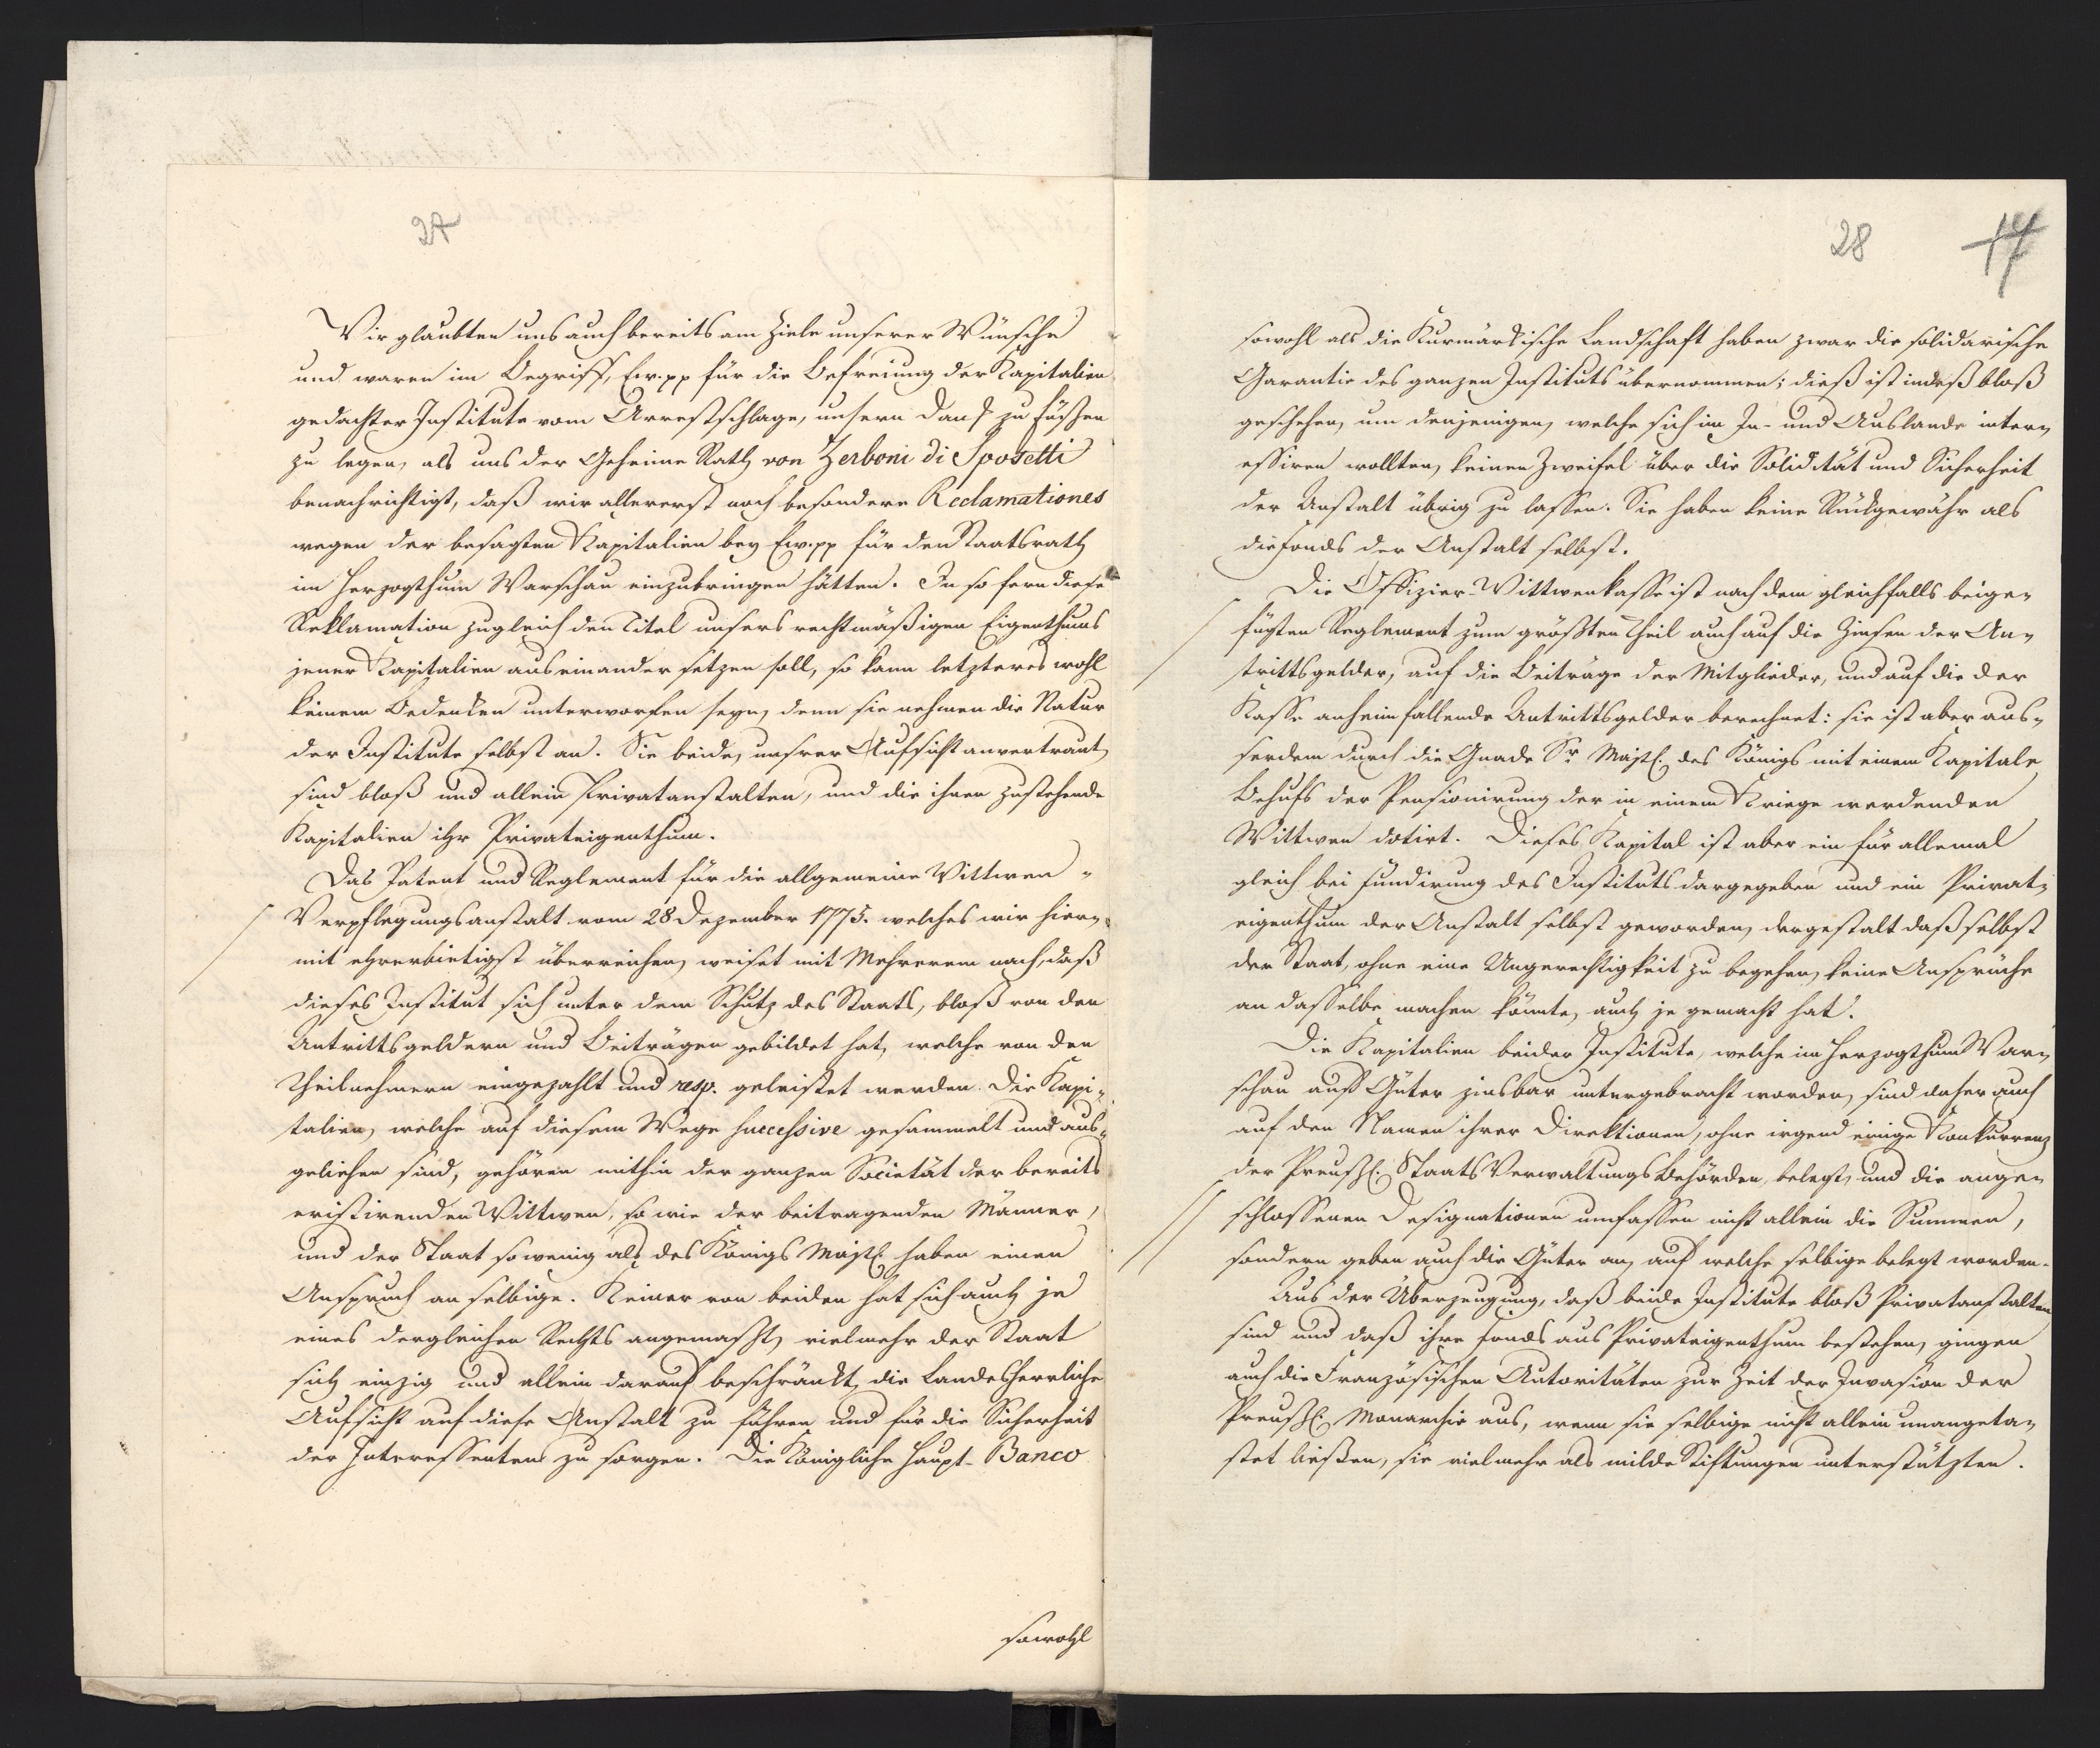 27
Wir glaubten uns auch bereits am Ziele unserer Wünsche
und waren im Begriff, Ew. pp für die Befreiung der Kapitalien
gedachter Institute vom Arrestschlage, unsern Dank zu Füßen
zu legen, als uns der Geheime Rath von Zerboni di Sposetti
benachrichtigt, daß wir allererst noch besondere Reclamationes
wegen der besagten Kapitalien bey Ew. pp für den Staatsrath
im Herzogthum Warschau einzubringen hätten. In so fern diese
Reklamation zugleich den Titel unsers rechtmäßigen Eigenthums
jener Kapitalien auseinander setzen soll, so kann letzteres wohl
keinem Bedenken unterworfen seyn, denn sie nehmen die Natur
der Institute selbst an. Sie beide, unsrer Aufsicht anvertraut,
sind bloß und allein Privatanstalten, und die ihnen zustehende
Kapitalien ihr Privateigenthum.
Das Patent und Reglement für die allgemeine Wittwen-
Verpflegungsanstalt vom 28 Dezember 1775. welches wir hier-
mit ehrerbietigst überreichen, weiset mit Mehrerem nach, daß
dieses Institut sich unter dem Schutz des Staats, bloß von den
Antrittsgeldern und Beiträgen gebildet hat, welche von den
Theilnehmern eingezahlt und resp. geleistet werden. Die Kapi-
talien, welche auf diesem Wege successive gesammelt und aus-
geliehen sind, gehören mithin der ganzen Societät der bereits
existirenden Wittwen, so wie der beitragenden Männer,
und der Staat sowenig als des Königs Majst. haben einen
Anspruch an selbige. Keiner von beiden hat sich auch je
eines dergleichen Rechts angemaßt, vielmehr der Staat
sich einzig und allein darauf beschränkt, die Landesherrliche
Aufsicht auf diese Anstalt zu führen und für die Sicherheit
der Interessenten zu sorgen. Die Königliche Haupt-Banco
sowohl
28
17
sowohl als die Kurmärkische Landschaft haben zwar die solidarische
Garantie des ganzen Instituts übernommen; dieß ist indeß bloß
geschehen, um denjenigen, welche sich im In- und Auslande inter-
essiren wollten, keinen Zweifel über die Solidität und Sicherheit
der Anstalt übrig zu lassen. Sie haben keine Rückgewähr als
die Fonds der Anstalt selbst.
Die Offizier-Wittwenkasse ist nach dem gleichfalls beige-
fügten Reglement zum größten Theil auch auf die Zinsen der An-
trittsgelder, auf die Beiträge der Mitglieder, und auf die der
Kasse anheimfallende Antrittsgelder berechnet: sie ist aber aus-
serdem durch die Gnade Sr Majst. des Königs mit einem Kapitale
Behufs der Pensionirung der in einem Kriege werdenden
Wittwen dotirt. Dieses Kapital ist aber ein für allemal
gleich bei Fundirung des Instituts dargegeben und ein Privat-
eigenthum der Anstalt selbst geworden, dergestalt daß selbst
der Staat, ohne eine Ungerechtigkeit zu begehen, keine Ansprüche
an dasselbe machen könnte, auch je gemacht hat.
Die Kapitalien beider Institute, welche im Herzogthum War-
schau auf Güter zinsbar untergebracht worden, sind daher auch
auf den Namen ihrer Direktionen, ohne irgend einige Konkurrenz
der Preußl. Staats Verwaltungs Behörden, belegt, und die ange-
schlossenen Designationen umfassen nicht allein die Summen,
sondern geben auch die Güter an, auf welche selbige belegt worden.
Aus der Überzeugung, daß beide Institute bloß Privatanstalten
sind und daß ihre Fonds aus Privateigenthum bestehen, gingen
auch die Französischen Autoritäten zur Zeit der Invasion der
Preußl. Monarchie aus, wenn sie selbige nicht allein unangeta-
stet ließen, sie vielmehr als milde Stiftungen unterstützten.